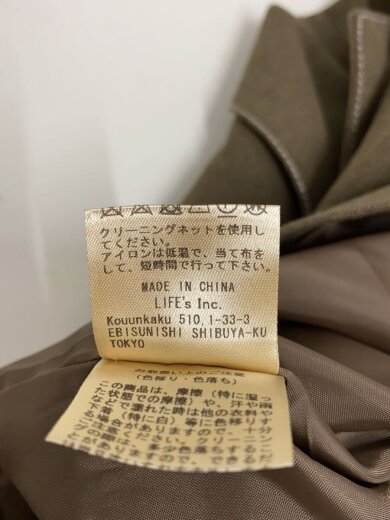 クリーニングネットを使用し
てください。
アイロンは低温で、当て布を
して、短時間で行って下さい。
MADE IN CHINA
LIFE's Inc.
Kouunkaku 510,1-33-3
EBISUNISHI SHIBUYA-KU
TOKYO
お取扱い上のご注意
(色移り・色落ち)
この商品は、摩擦(特に湿っ
た状態での摩擦)や、汗や雨
などで濡れた時は他の衣料や
下着(特に白)等に色移りす
る場合がありますので、十分